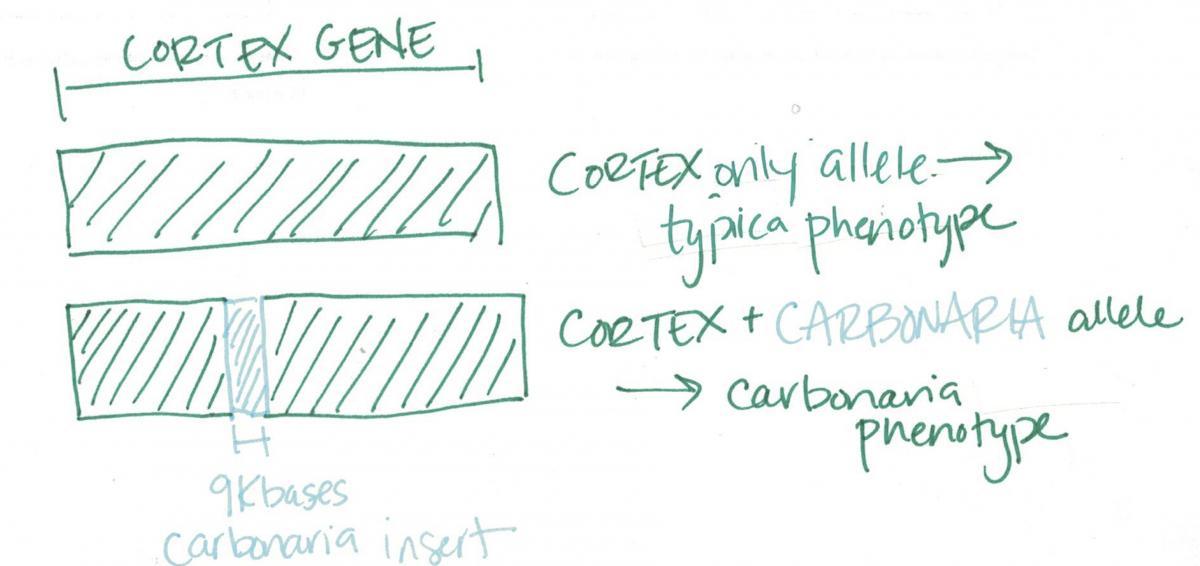 CORTEX GENE
CORTEX only allele →
typica phenotype
CORTEX + CARBONARIA allele
→ carbonaria
phenotype
9Kbases
carbonaria insert